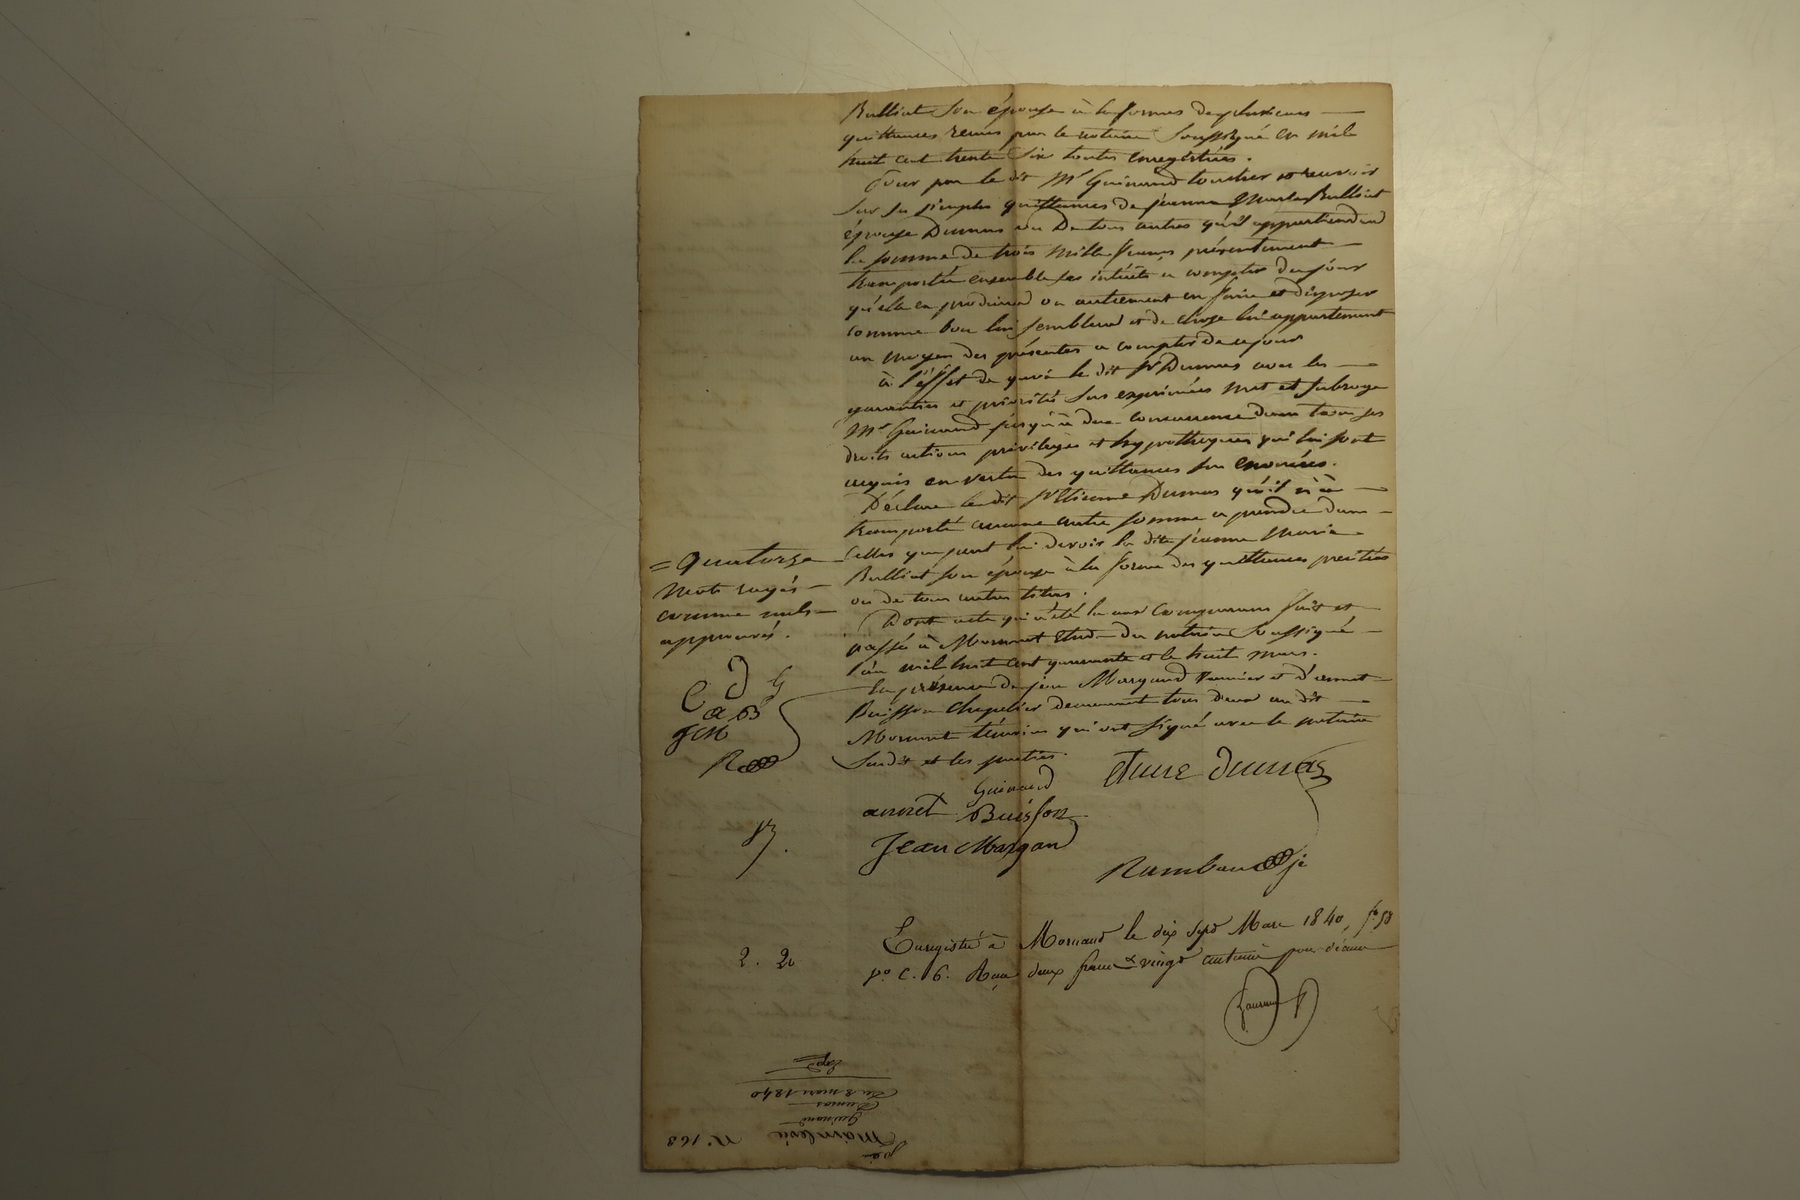 Bulliat son épouse à la forme de plusieurs
quittances reçues par le notaire soussigné en mil
huit cent trente six toutes enregistrées.
Pour par le dit Mr Guinand toucher et recevoir
sur sa simple quittances de jeanne Marie Bulliat
épouse Dumas ou De tous autres qu'il appartiendra
la somme de trois mille francs présentement
transportée ensemble les intérêts a compter du jour
qu'elle en produira ou autrement en faire et disposer
comme bon lui semblera et de chose lui appartenant
au moyen des présentes a compter de ce jour
à l'effet de quoi le dit Sr Dumas avec les
garanties et priorités sus exprimées met et subroge
Mr Guinand jusqu'à due concurrence dans tous ses
droits actions privilèges et hypothèques qui lui sont
acquis en vertu des quittances sus énoncées.
Déclare le dit Sr Etienne Dumas qu'il n'a
transporté aucune autre somme a prendre dans
celles que peut lui devoir la dite jeanne Marie
Bulliat son épouse à la forme des quittances précitées
ou de tous autres titres.
Dont acte qui a été lu aux comparans fait et
passé à Mornant étude du notaire soussigné
l'an mil huit cent quarante et le huit mars.
En présence de jean Margand et d'annet
Buisson chapelier demeurant tous deux au dit
Mornant témoins qui ont signé avec le notaire
susdit et les parties.
= Quatorze
mots rayés
comme nuls
approuvés.
E D G
a B
J M
R
Guinand
etiene dumas
annet Buisson
Jean Margand
Rambaud
Enregistré à Mornand le dix sept Mars 1840, fo 58
vo c. 6. Reçu deux francs vingt centimes pour décime
2. 20
No 168
Mainlevée
Guinand
Dumas
Du 8 mars 1840
Expé